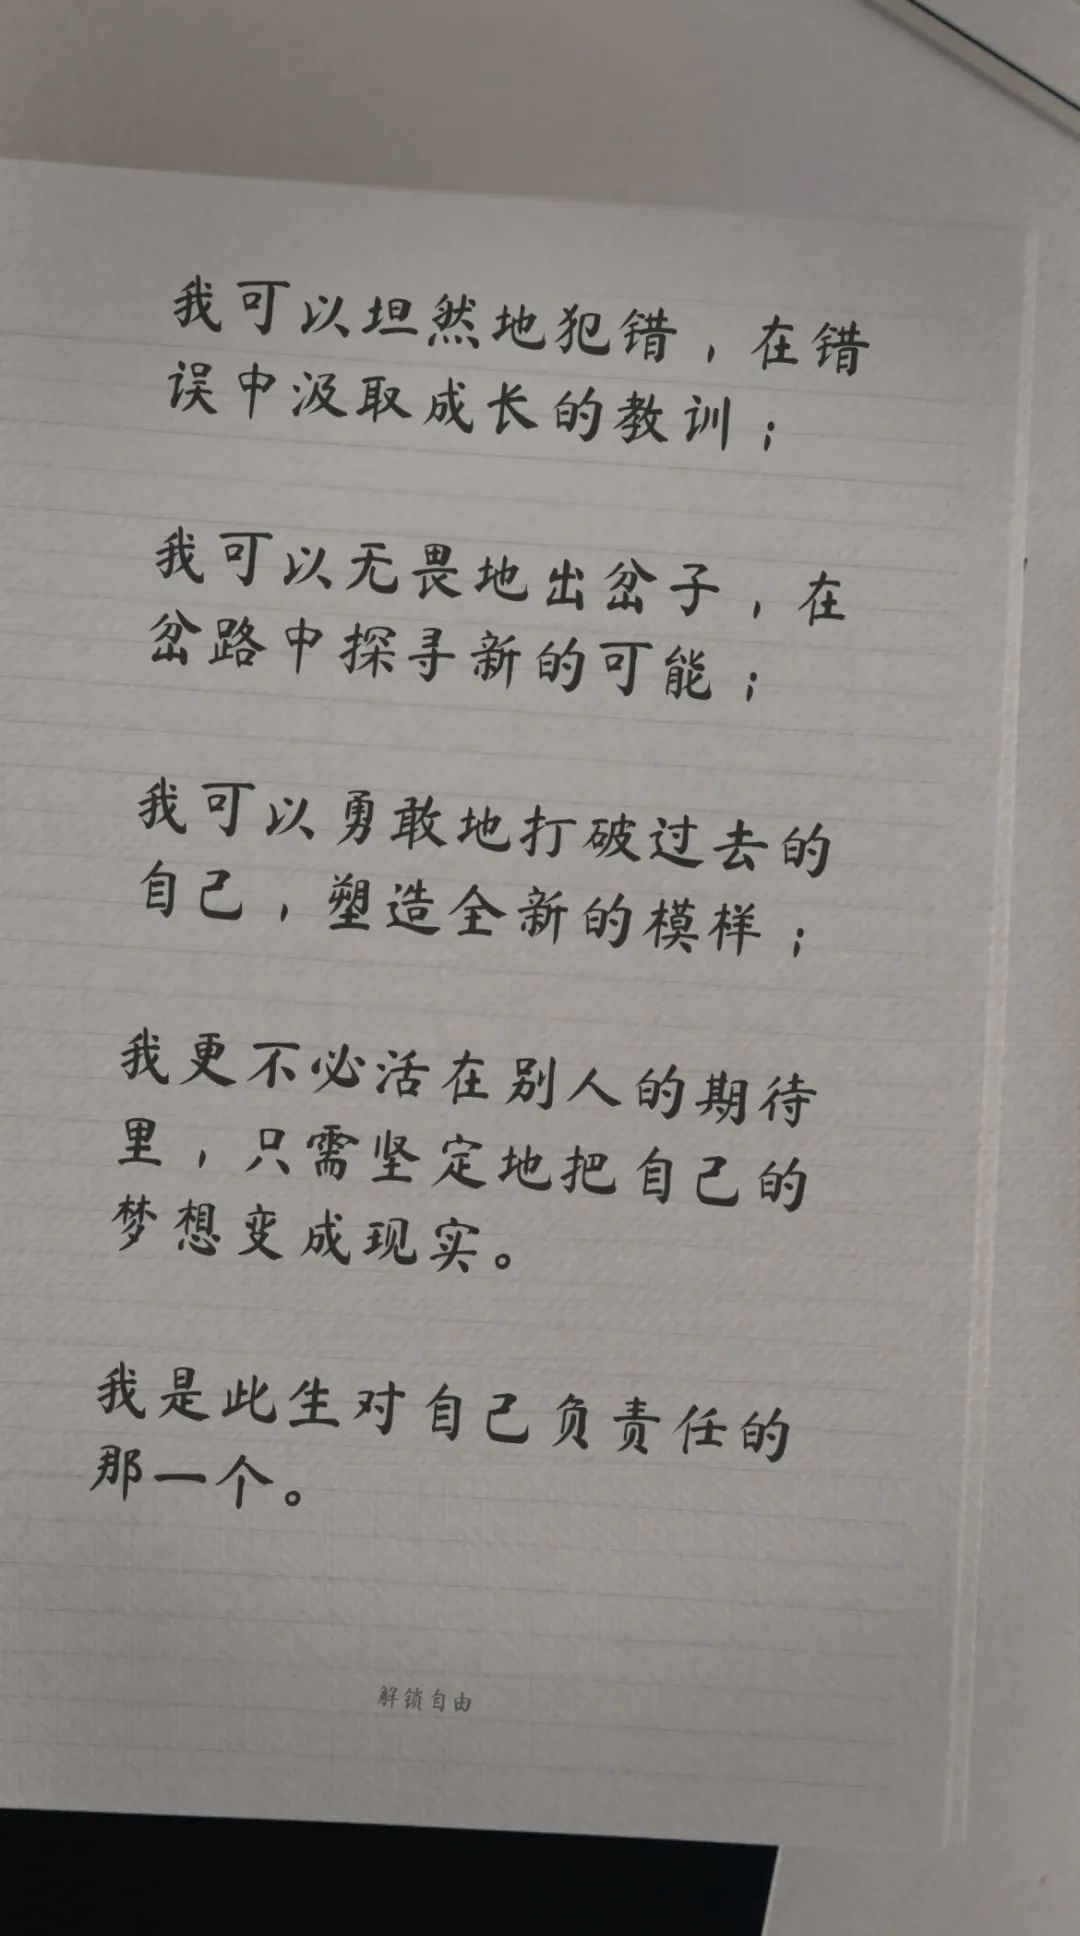 我可以坦然地犯错，在错
误中汲取成长的教训；
我可以无畏地出岔子，在
岔路中探寻新的可能；
我可以勇敢地打破过去的
自己，塑造全新的模样；
我更不必活在别人的期待
里，只需坚定地把自己的
梦想变成现实。
我是此生对自己负责任的
那一个。
解锁自由